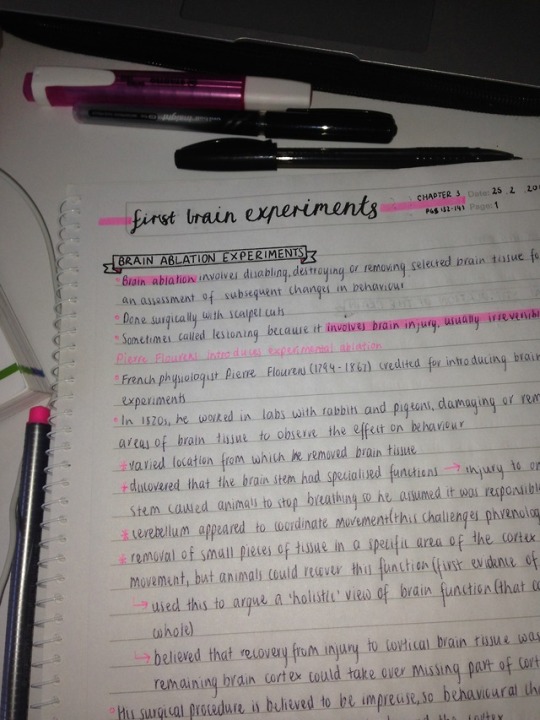 CHAPTER 3 Date: 25 . 2
PGS 132-142 Page: 1
first brain experiments
BRAIN ABLATION EXPERIMENTS
• Brain ablation involves disabling, destroying or removing selected brain tissue
an assessment of subsequent changes in behaviour
• Done surgically with scalpel cuts
• Sometimes called lesioning because it involves brain injury, usually irreversib
Pierre Flourens introduces experimental ablation
• French physiologist Pierre Flourens credited for introducing brain
experiments
• In 1820s, he worked in labs with rabbits and pigeons, damaging or rem
areas of brain tissue to observe the effect on behaviour
* varied location from which he removed brain tissue
* discovered that the brain stem had specialised functions → injury to
stem caused animals to stop breathing so he assumed it was responsibl
* cerebellum appeared to coordinate movement (this challenges phrenolog
* removal of small pieces of tissue in a specific area of the cortex
movement, but animals could recover this function (first evidence of
→ used this to argue a 'holistic' view of brain function (that
whole)
→ believed that recovery from injury to cortical brain tissue was
remaining brain cortex could take over missing part of cort
• His surgical procedure is believed to be imprecise, so behavioural ch